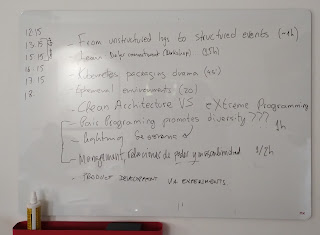 12:15
13:15
15:15
16:15
17:15
18:
- From unstructured logs to structured events (~1h)
- Lean
(Workshop) (1.5h)
- Kubernetes packaging drama (45)
- Ephemeral environments (20)
- Clean Architecture VS eXtreme Programming
- Pair Programing promotes diversity???
1h
- lightning
- Management, relaciones de poder y masculinidad 1/2h
- PRODUCT DEVELOPMENT VIA EXPERIMENTS.